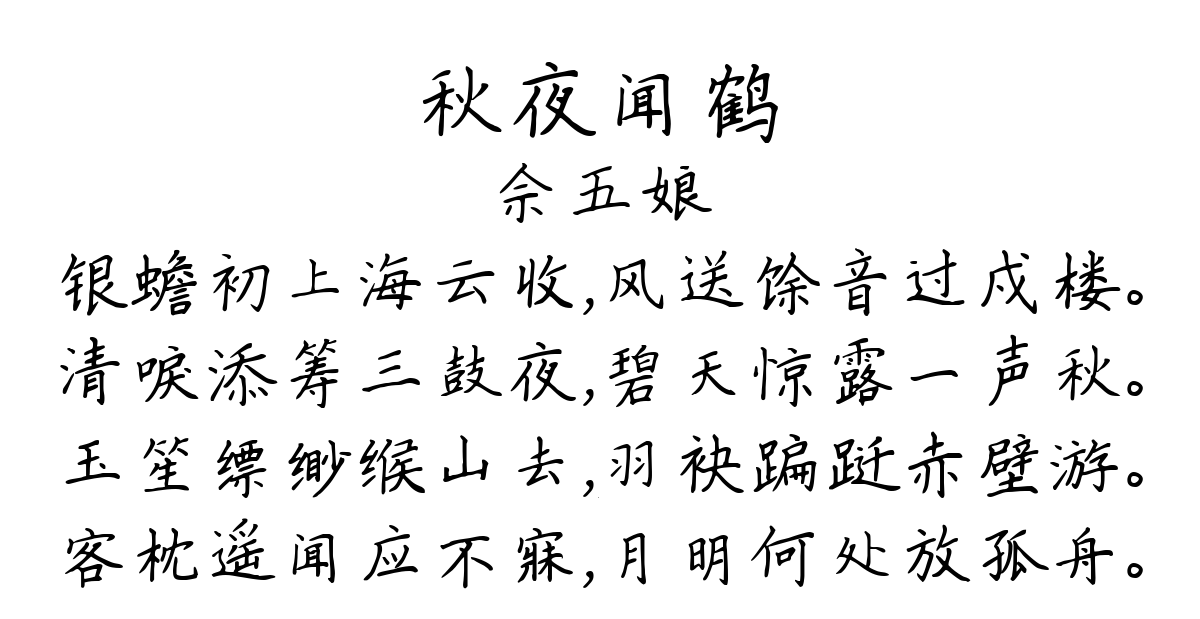 秋夜闻鹤
佘五娘
银蟾初上海云收,风送馀音过戍楼。
清唳添筹三鼓夜,碧天惊露一声秋。
玉笙缥缈缑山去,羽袂蹁跹赤壁游。
客枕遥闻应不寐,月明何处放孤舟。